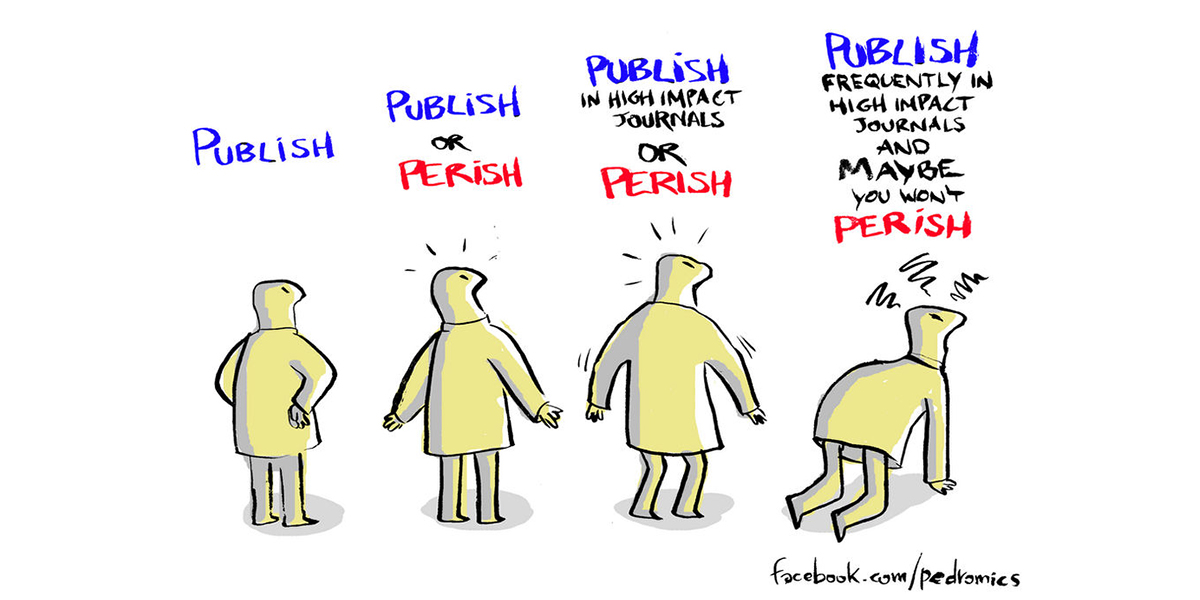 PUBLISH
PUBLISH
OR
PERISH
PUBLISH
IN HIGH IMPACT
JOURNALS
OR
PERISH
PUBLISH
FREQUENTLY IN
HIGH IMPACT
JOURNALS
AND
MAYBE
YOU WON'T
PERISH
facebook.com/pedromics